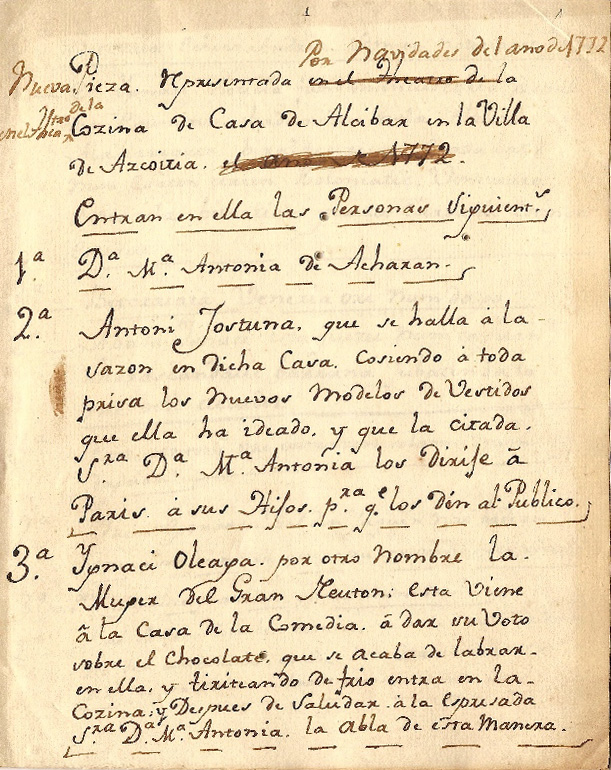 1
Por Navidades del año de 1772
Nueva Pieza. Representada en el Theatro de la
Cozina de Casa de Alcibar en la Villa
de Azcoitia. el año de 1772.
Entran en ella las Personas Siguient.s
1.a D.a M.a Antonia de Acharan.
2.a Antoni Jostuna, que se halla à la
sazon en dicha Casa, Cosiendo à toda
prisa los Nuevos Modelos de Vestidos
que ella ha ideado, y que la citada.
S.ra D.a M.a Antonia los dirife à
Paris. à sus Hifos. p.ra q.e los dén al Publico.
3.a Ygnaci Oleaga. por otro nombre la
Muger Del Gran Neuton; Esta viene
à la Casa de la Comedia. à dar su Voto
sobre el Chocolate, que se acaba de labrar
en ella, y tiriteando de frio entra en la
Cozina; y Despues de Saludar à la Espresada
S.ra D.a M.a Antonia. la abla de esta Manera.